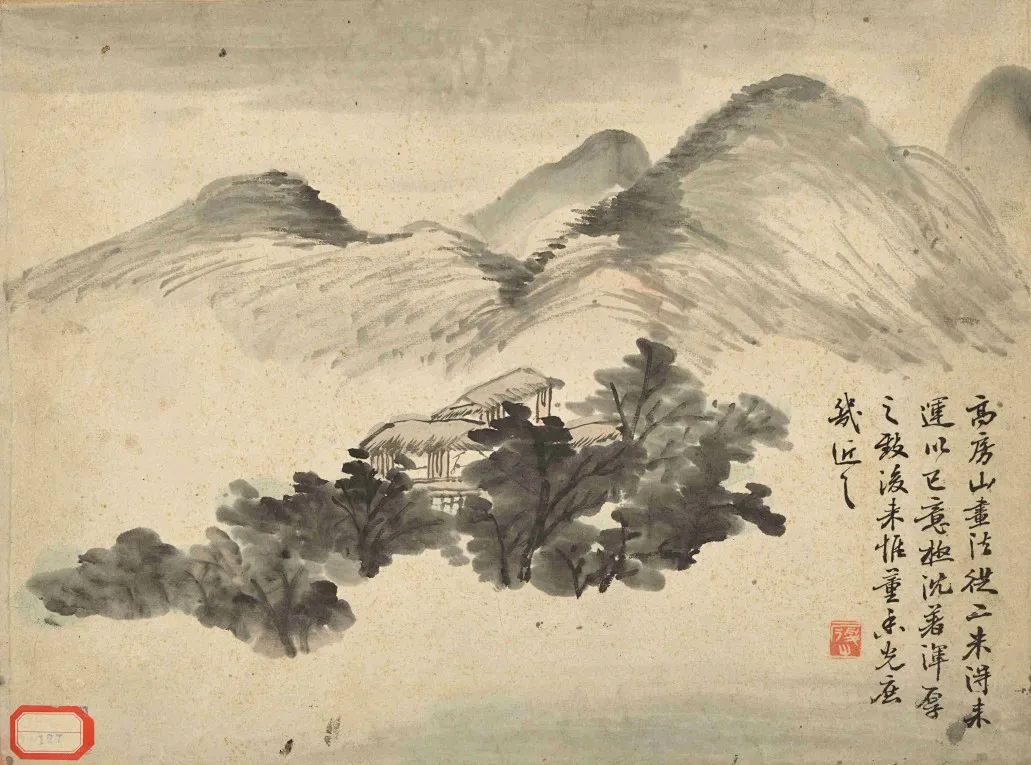 高房山畫法從二米淂来
運以己意極沉著渾厚
之致後来惟董香光庶
幾近之
127